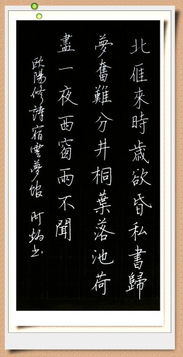 北雁來時歲欲昏私書歸
夢杳難分井桐葉落池荷
盡一夜西窗雨不聞
歐陽修詩宿雲夢館 阿炳书